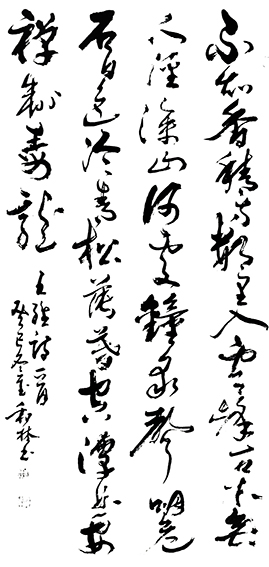 不知香積寺數里入雲峰古木無
人徑深山何處鐘泉聲咽危
石日色冷青松薄暮空潭曲安
禪制毒龍
王維詩一首
癸巳冬至 林书